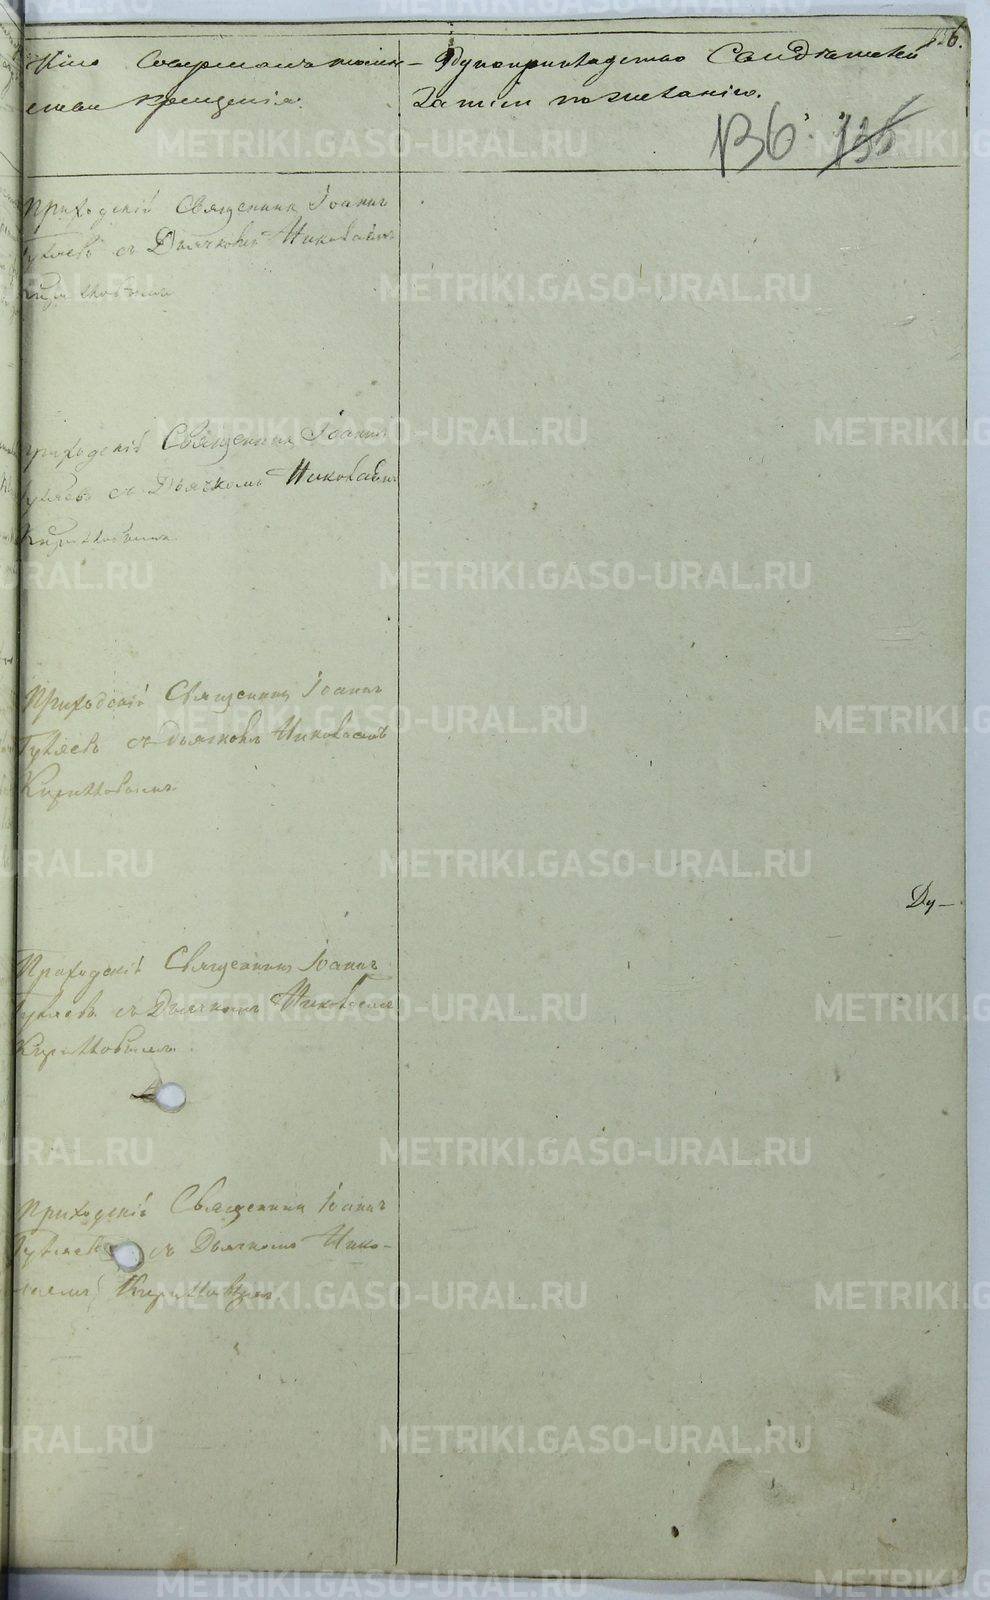 136.
Кто совершалъ таин-
ство крещенія.
Рукоприкладство свидѣтелей
записи по желанію.
136. 135
Приходскій Священникъ Іоаннъ
Гуляевъ съ Дьячкомъ Николаемъ
Кирилловымъ
Приходскій Священникъ Іоаннъ
Гуляевъ съ Дьячкомъ Николаемъ
Кирилловымъ
Приходскій Священникъ Іоаннъ
Гуляевъ съ Дьячкомъ Николаемъ
Кирилловымъ
Ду-
Приходскій Священникъ Іоаннъ
Гуляевъ съ Дьячкомъ Николаемъ
Кирилловымъ.
Приходскій Священникъ Іоаннъ
Гуляевъ съ Дьячкомъ Нико-
лаемъ Кирилловымъ
METRIKI.GASO-URAL.RU